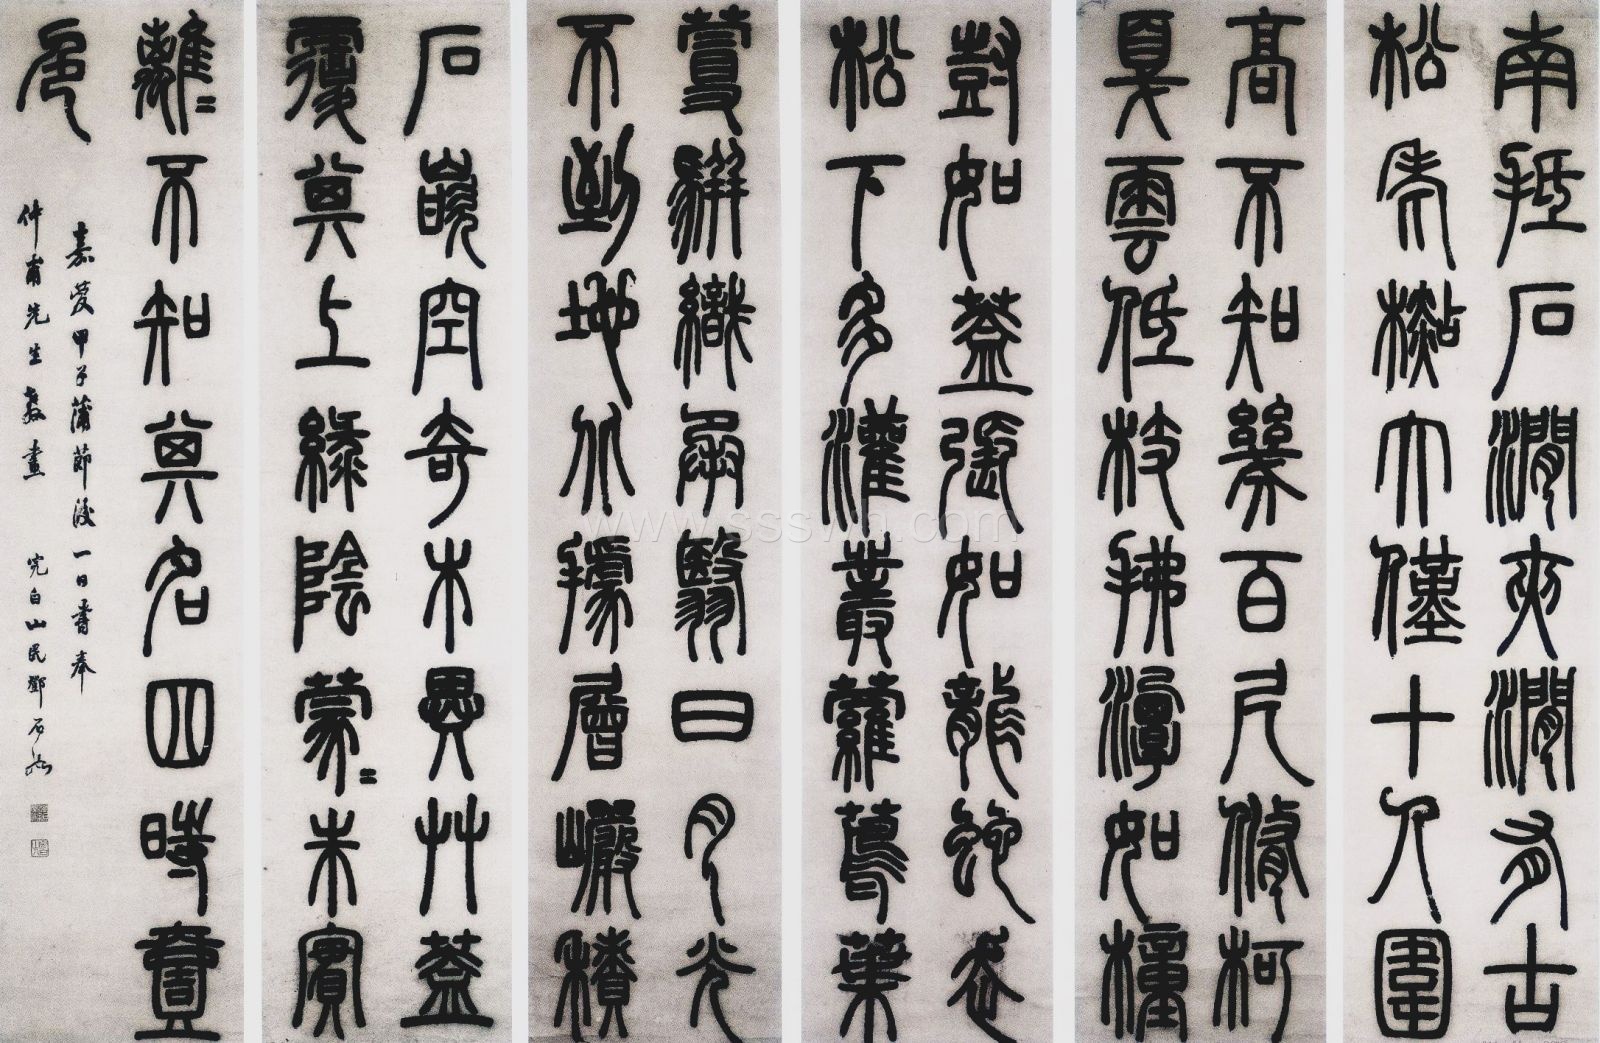 南抵石澗夾澗有古
松老檆大僅十人圍
高不知幾百尺脩柯
戛雲低枝拂潭如橦
尌如蓋張如龍蛇走
松下多灌叢蘿蔦葉
蔓駢織承翳日月光
不到地北據層巖積
石嵌空奇木異艸蓋
覆其上綠陰蒙〻朱實
離〻不知其名四時壹
色
嘉慶甲子蒲節後一日書奉
仲甫先生教畫 完白山民鄧石如
www.ssswh.com